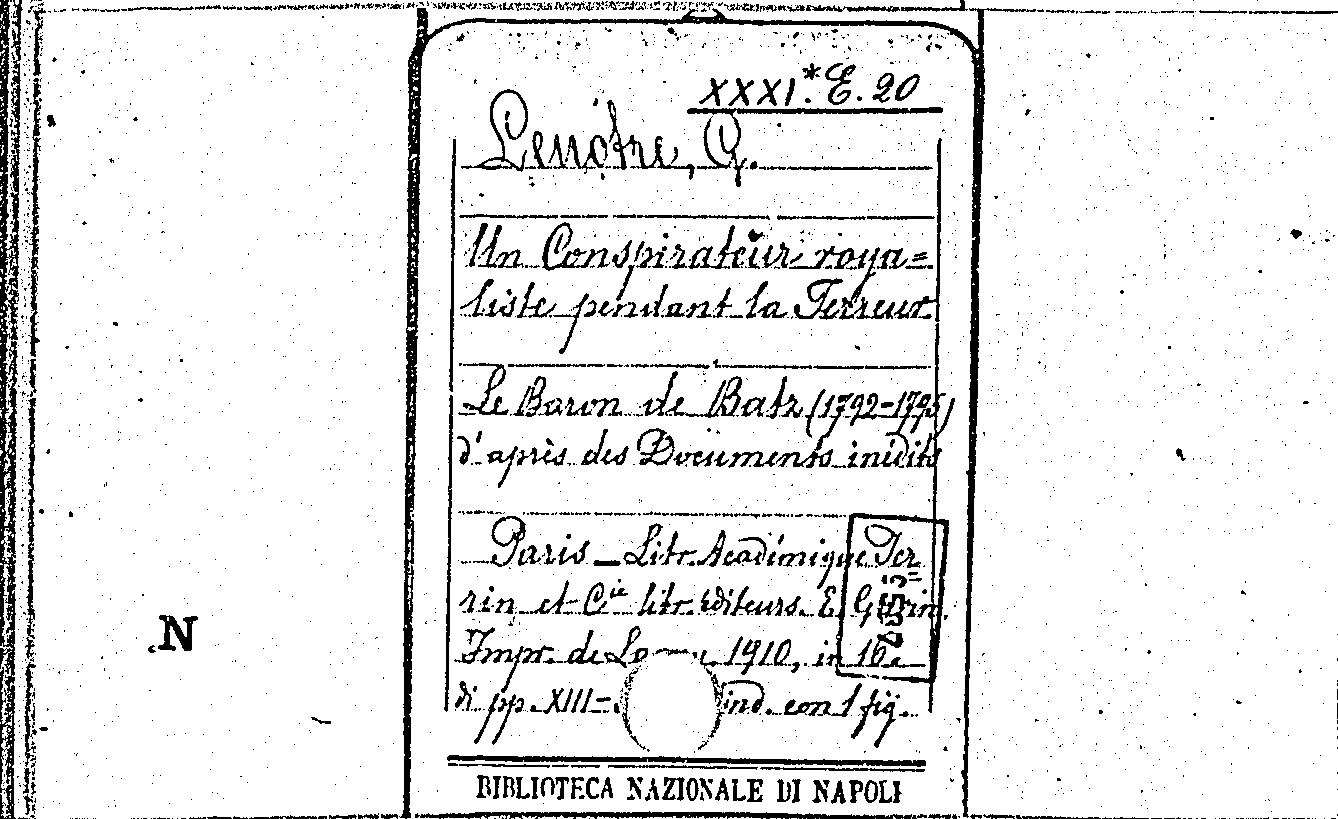 XXXI.* E. 20
Lenôtre, G.
Un Conspirateur roya=
liste pendant la Terreur
Le Baron de Batz (1792-1795)
d'après des Documents inédits
Paris — Libr. Académique Per
rin et Cie libr. éditeurs. E.
Impr. de 1910, in 16.
di pp. XIII- ind. con 1 fig.
N
BIBLIOTECA NAZIONALE DI NAPOLI